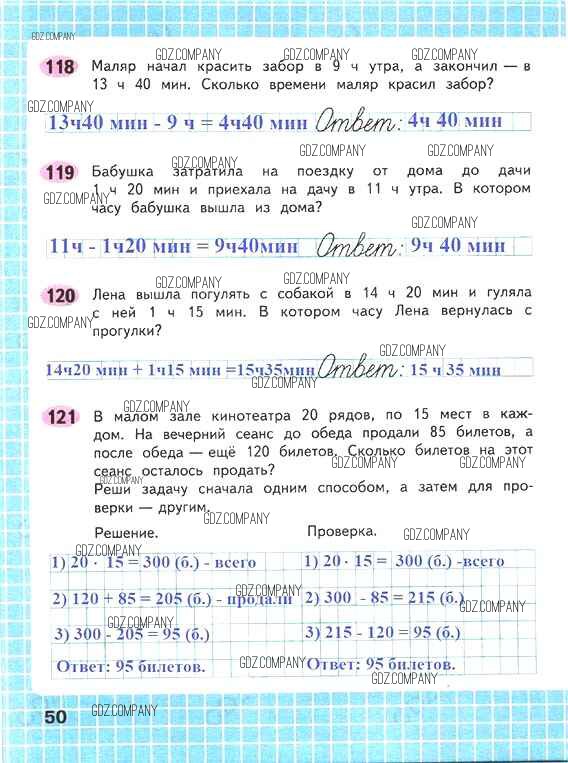 GDZ.COMPANY
GDZ.COMPANY GDZ.COMPANY GDZ.COMPANY
118 Маляр начал красить забор в 9 ч утра, а закончил — в
13 ч 40 мин. Сколько времени маляр красил забор?
GDZ.COMPANY
13ч40 мин - 9 ч = 4ч40 мин Ответ: 4ч 40 мин
GDZ.COMPANY GDZ.COMPANY
GDZ.COMPANY
119 Бабушка затратила на поездку от дома до дачи
1 ч 20 мин и приехала на дачу в 11 ч утра. В котором
GDZ.COMPANY
часу бабушка вышла из дома?
11ч - 1ч20 мин = 9ч40мин Ответ: 9ч 40 мин
GDZ.COMPANY GDZ.COMPANY
120 Лена вышла погулять с собакой в 14 ч 20 мин и гуляла
с ней 1 ч 15 мин. В котором часу Лена вернулась с
GDZ.COMPANY
прогулки?
GDZ.COMPANY
14ч20 мин + 1ч15 мин =15ч35мин Ответ: 15 ч 35 мин
GDZ.COMPANY
GDZ.COMPANY
121 В малом зале кинотеатра 20 рядов, по 15 мест в каж-
дом. На вечерний сеанс до обеда продали 85 билетов, а
после обеда — ещё 120 билетов. Сколько билетов на этот
сеанс осталось продать?
GDZ.COMPANY
GDZ.COMPANY
Реши задачу сначала одним способом, а затем для про-
верки — другим.
GDZ.COMPANY
Решение. Проверка.
GDZ.COMPANY
GDZ.COMPANY
1) 20 · 15 = 300 (б.) - всего 1) 20 · 15 = 300 (б.) -всего
GDZ.COMPANY
2) 120 + 85 = 205 (б.) - продали 2) 300 - 85 = 215 (б.)
GDZ.COMPANY
GDZ.COMPANY
3) 300 - 205 = 95 (б.) 3) 215 - 120 = 95 (б.)
GDZ.COMPANY
Ответ: 95 билетов. Ответ: 95 билетов.
GDZ.COMPANY
50 GDZ.COMPANY